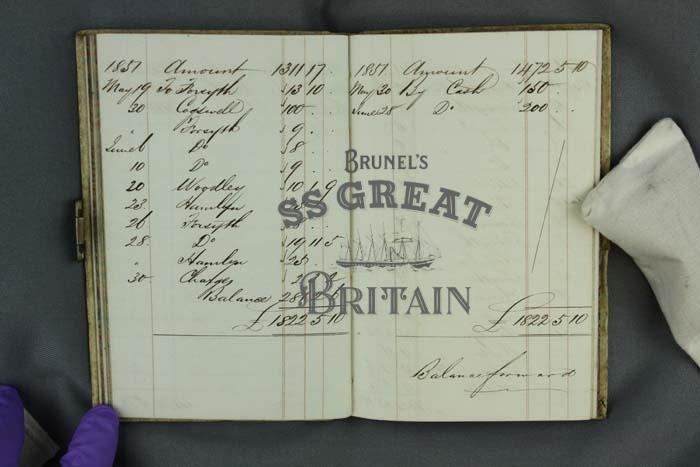 1851 Amount 1311 17 .
May 19 To Forsyth 13 10 .
30 100 . .
" Forsyth 9 . .
June 6 Do 8 . .
10 Do 9 . .
20 Woodley 10 1 9
23 Hamlyn
26 Forsyth
28 Do 19 11 5
" Hamlyn 25 . .
30 Charges
Balance
£1822 5 10
1851 Amount 1472 5 10
May 30 By Cash 150 . .
June 28 Do 200 . .
£1822 5 10
Balance forward
BRUNEL'S
SS GREAT
BRITAIN